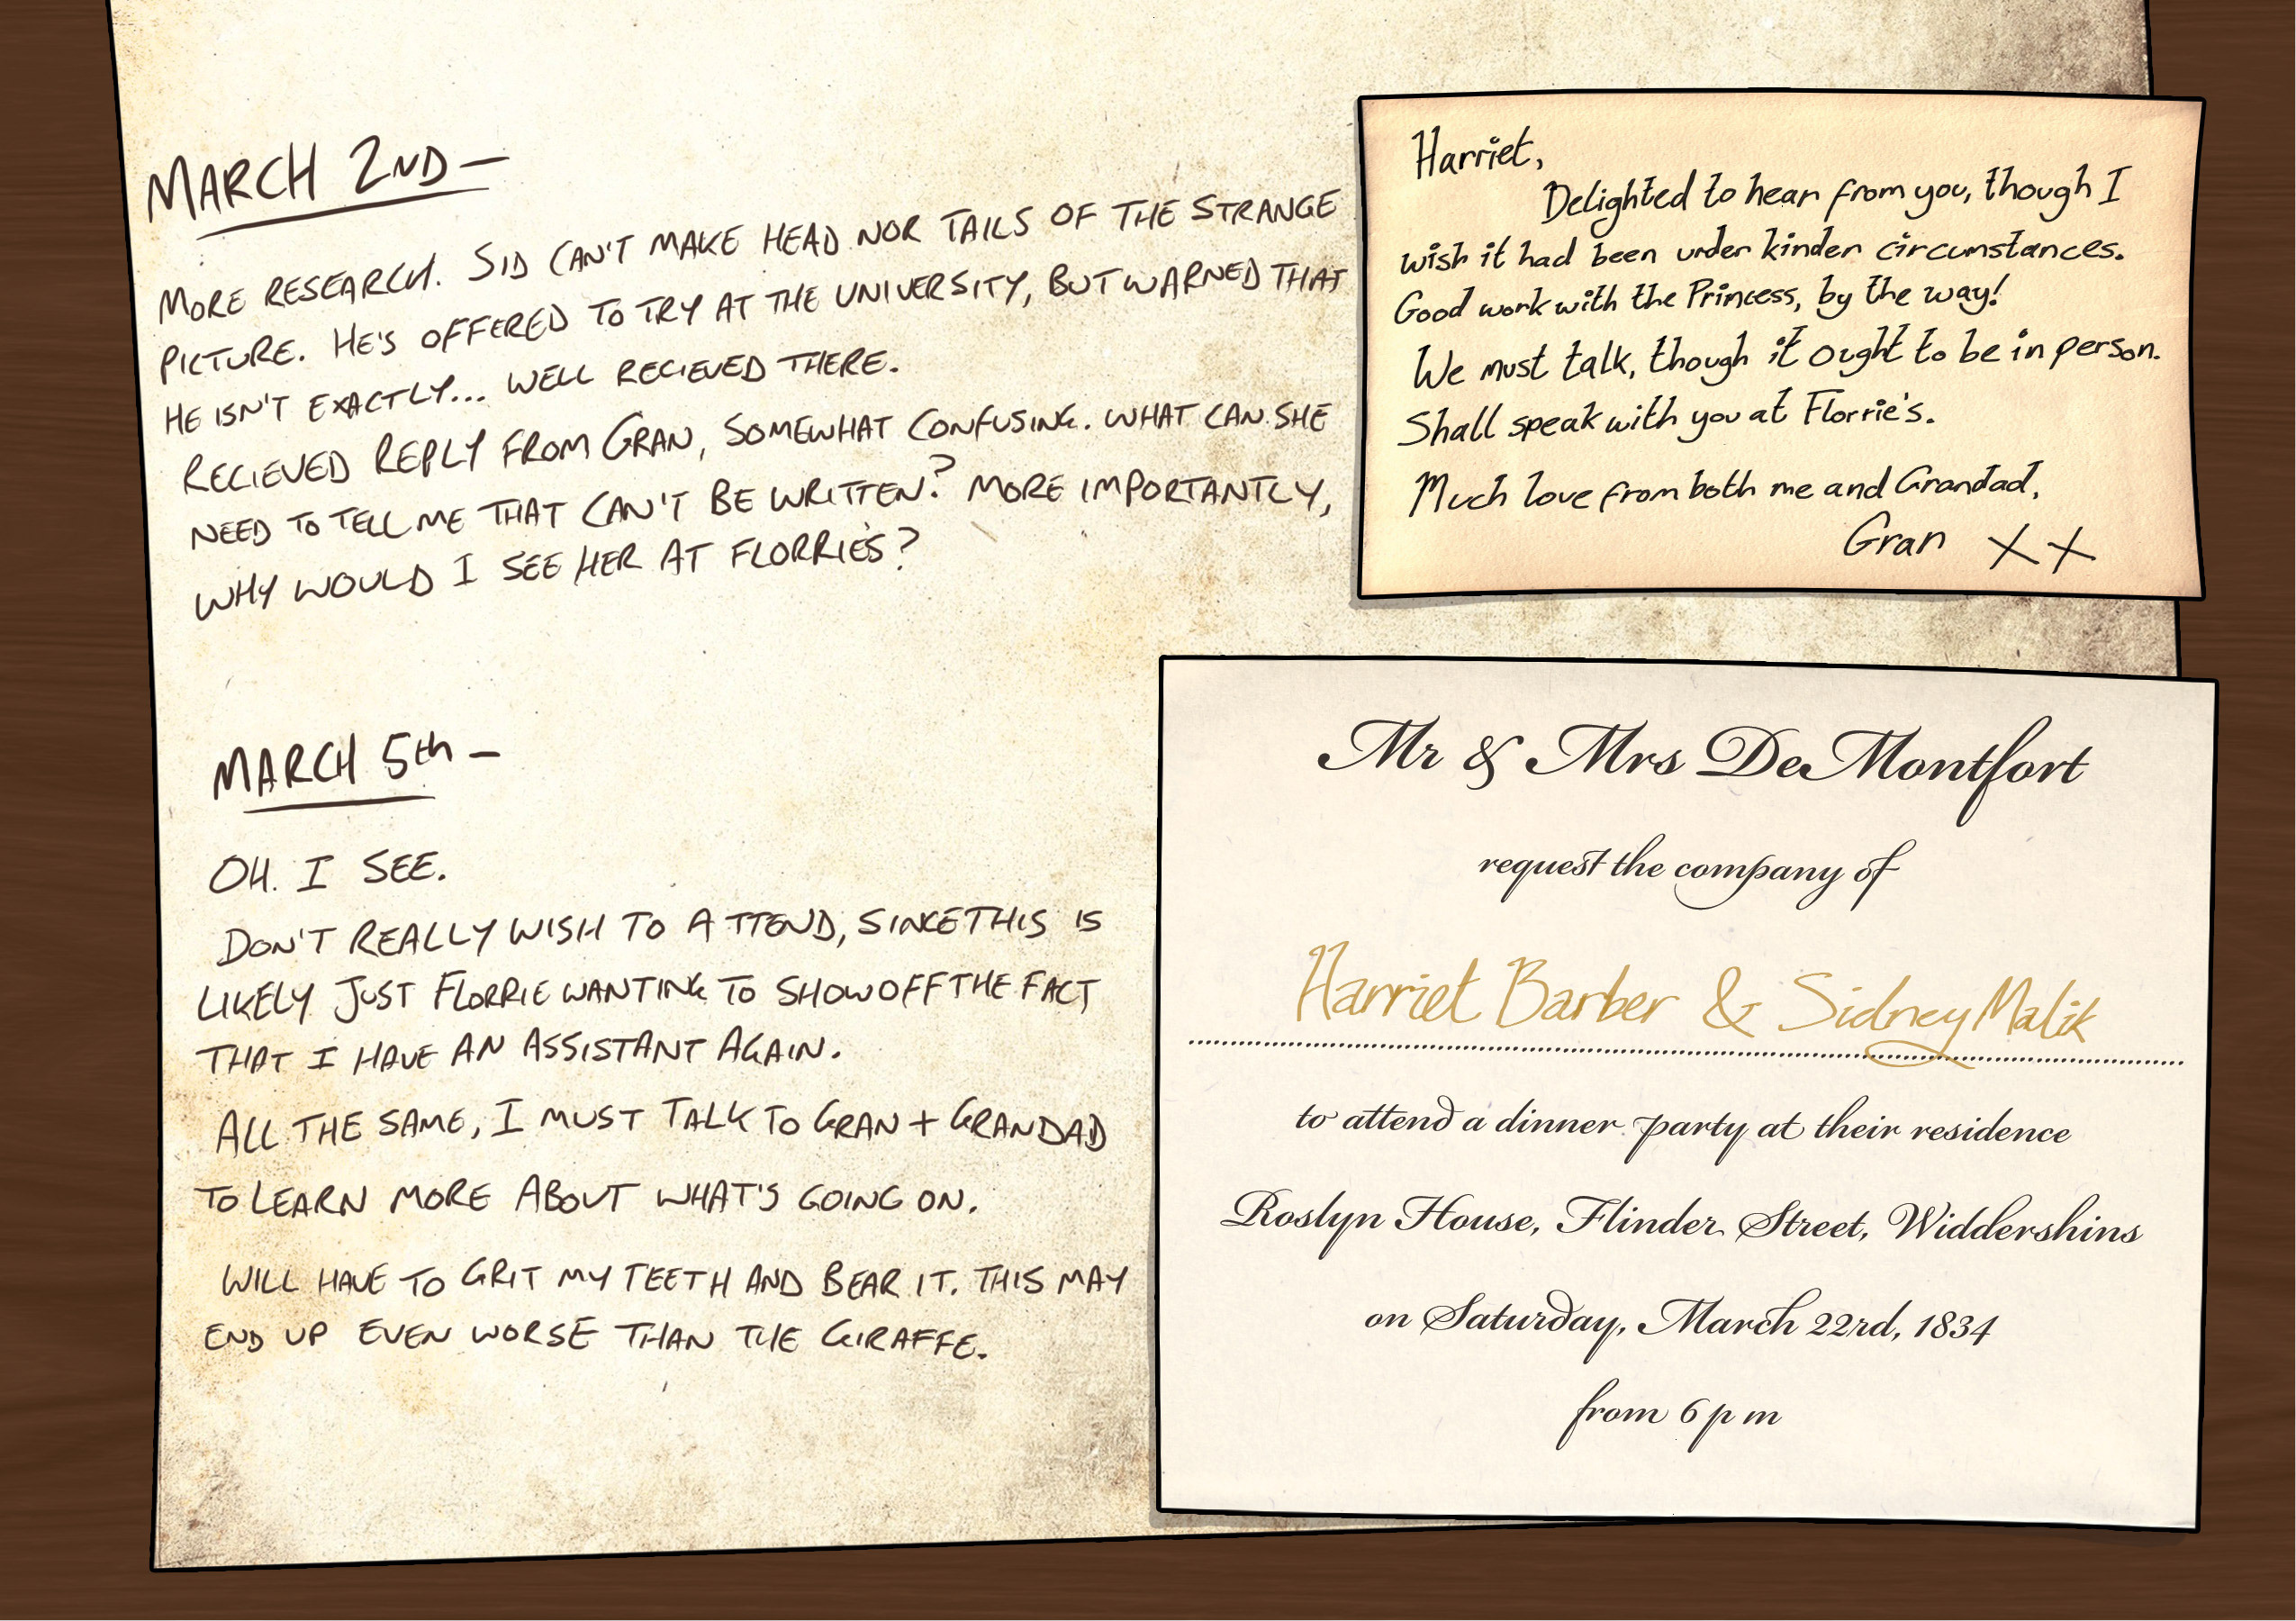 MARCH 2ND –
MORE RESEARCH. SID CAN'T MAKE HEAD NOR TAILS OF THE STRANGE
PICTURE. HE'S OFFERED TO TRY AT THE UNIVERSITY, BUT WARNED THAT
HE ISN'T EXACTLY... WELL RECIEVED THERE.
RECIEVED REPLY FROM GRAN, SOMEWHAT CONFUSING. WHAT CAN SHE
NEED TO TELL ME THAT CAN'T BE WRITTEN? MORE IMPORTANTLY,
WHY WOULD I SEE HER AT FLORRIE'S?
Harriet,
Delighted to hear from you, though I
wish it had been under kinder circumstances.
Good work with the Princess, by the way!
We must talk, though it ought to be in person.
Shall speak with you at Florrie's.
Much love from both me and Grandad,
Gran XX
MARCH 5th –
OH. I SEE.
DON'T REALLY WISH TO ATTEND, SINCE THIS IS
LIKELY JUST FLORRIE WANTING TO SHOW OFF THE FACT
THAT I HAVE AN ASSISTANT AGAIN.
ALL THE SAME, I MUST TALK TO GRAN + GRANDAD
TO LEARN MORE ABOUT WHAT'S GOING ON.
WILL HAVE TO GRIT MY TEETH AND BEAR IT. THIS MAY
END UP EVEN WORSE THAN THE GIRAFFE.
Mr & Mrs DeMontfort
request the company of
Harriet Barber & Sidney Malik
to attend a dinner party at their residence
Roslyn House, Flinder Street, Widdershins
on Saturday, March 22rd, 1834
from 6 p m